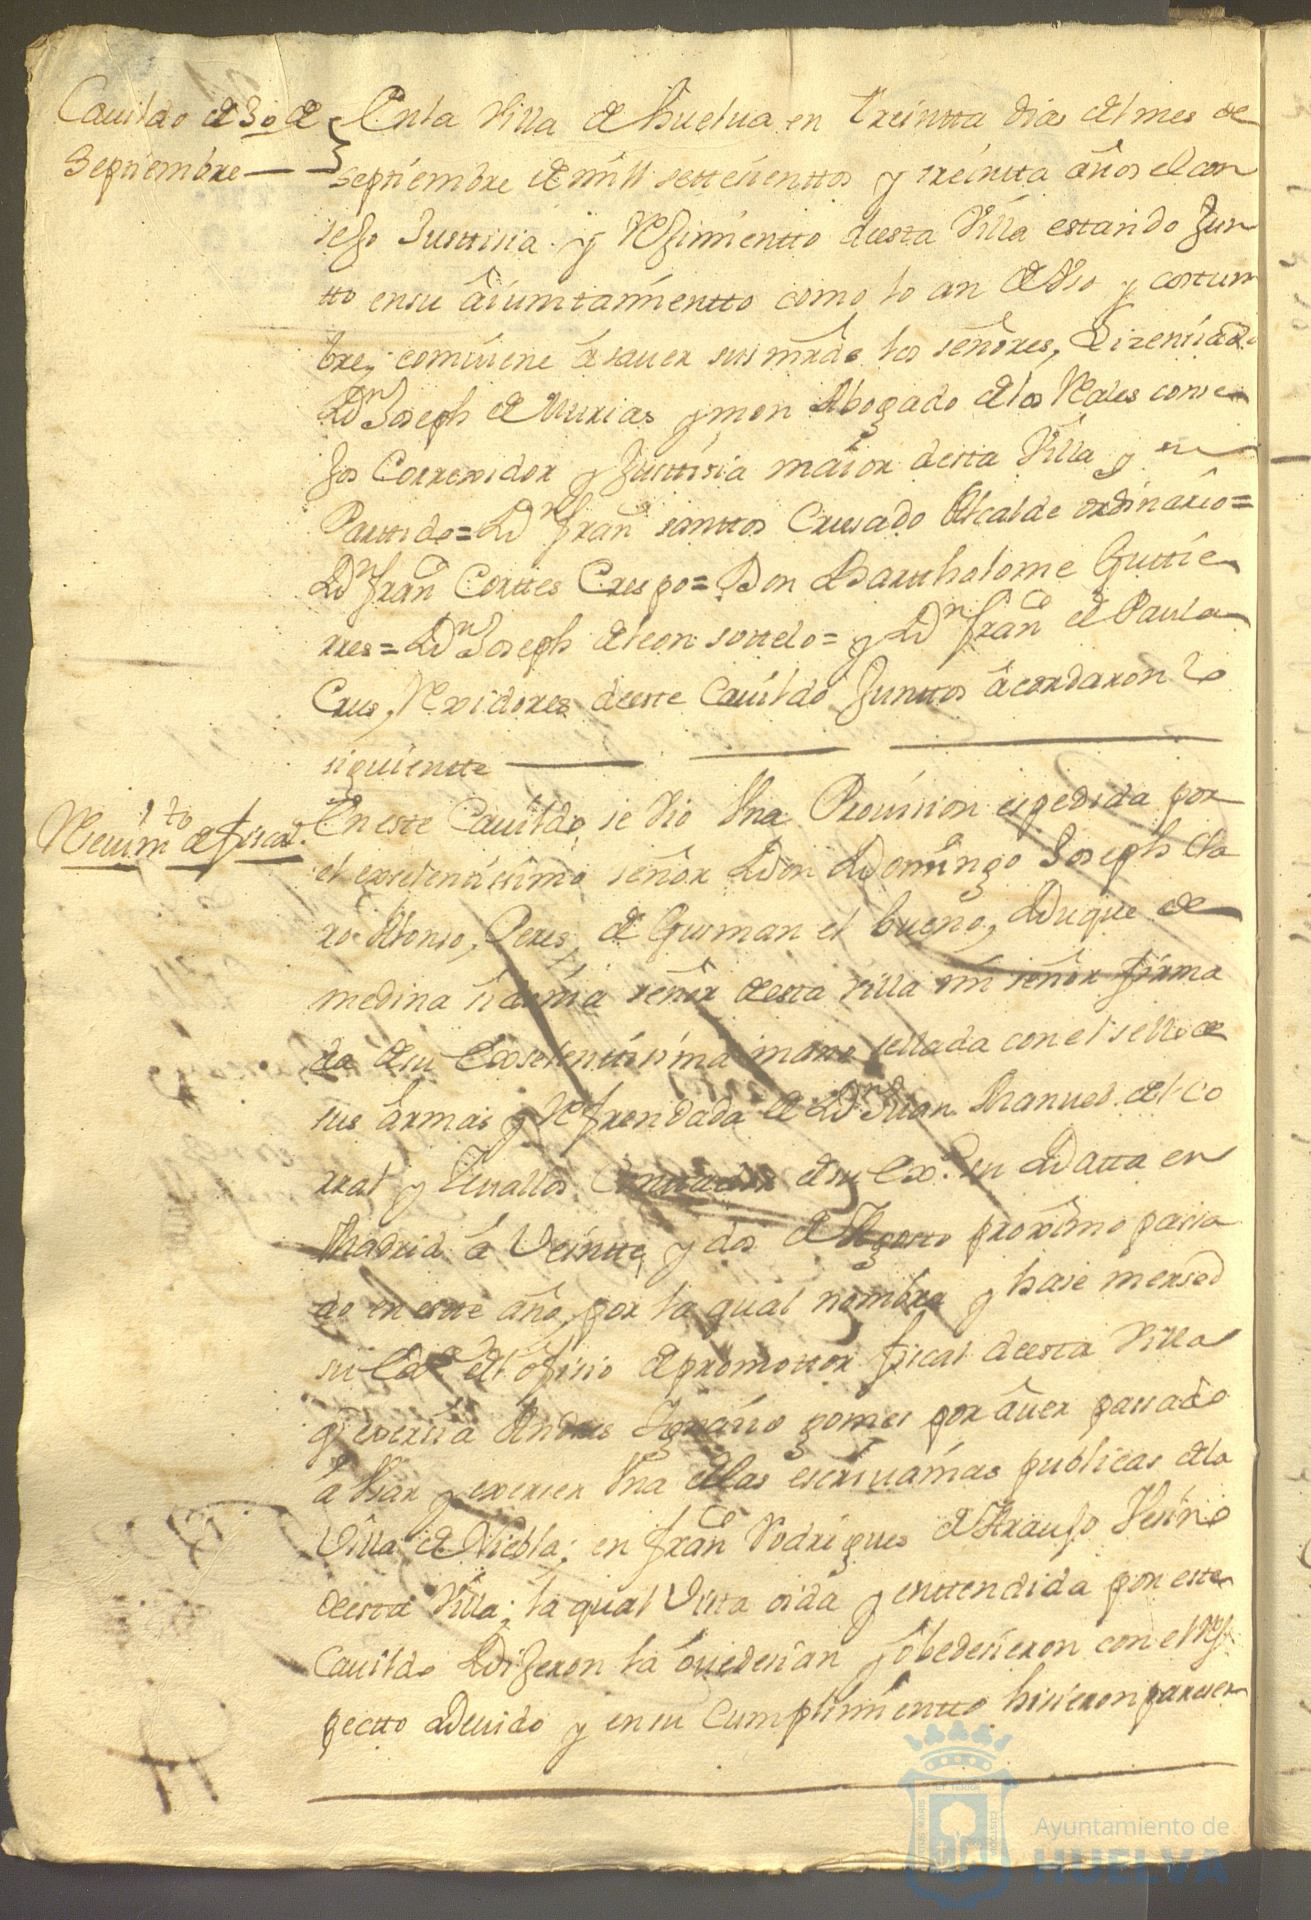 Cauildo de 30 de
Septiembre
En la Villa de Huelua en treintta dias del mes de
septiembre de mill settecienttos y treintta años el con
sejo Justtisia y Rejimientto deesta Villa estando Jun
tto ensu aiuntamientto como lo an de Vso y costum
bre, combiene a sauer sus mrds los señores, Lizensiado
Dn Joseph de Murias ymon Abogado delos Rales conse
jos Correxidor y Justtisia maior desta Villa y su
Parttido= Dn Franco santtos Crusado Alcalde ordinario=
Dn Franco Corttes Crespo= Don Barttholome Guttie
rres= Dn Joseph deleon sottelo= y Dn Franco de Paula
Crus, Rexidores deeste Cauildo Junttos acordaron lo
siguientte
Reciuimto de fiscal.
En este Cauildo, se Vio Vna Prouision espedida por
el exselentissimo señor Don Domingo Joseph Cla
ro Alfonso, Peres, de Gusman el bueno, Duque de
medina sidonia señor deesta villa mi señor firma
da desu Exselentissima mano sellada con el sello de
sus armas y Refrendada de Dn Juan Manuel del Co
rral y Seuallos Conttador desu Exa. su Datta en
Madrid a Veintte y dos de Agosto proximo passa
do en este año, por la qual nombra y hase mersed
su Exa del ofisio de promottor fiscal deesta Villa
q exersia Andres Ygnasio gomes por auer passado
a Vsar y exerser Vna delas escriuanias publicas dela
Villa de Niebla; en Franco Rodrigues de Araujo Vesino
deesta Villa; la qual Vista oida y enttendida por este
Cauildo Dijeron la ouedesian y obedesieron con el Res
pectto Deuido y en su Cumplimientto hisieron pareser
Ayuntamiento de
HUELVA